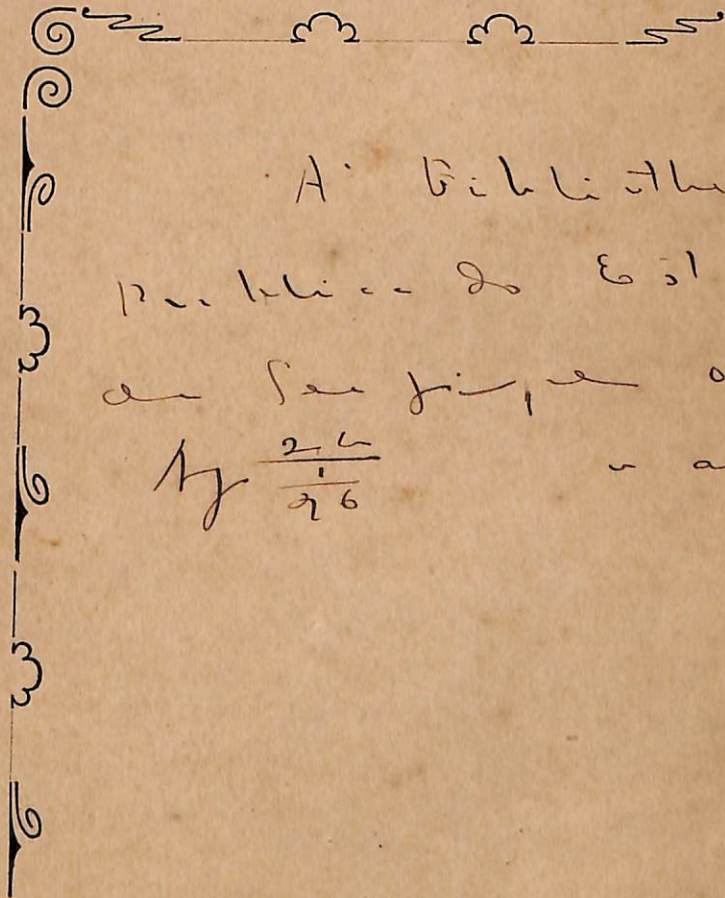 A' Bibliothe
Publica do Est
de Sergipe o
Aj